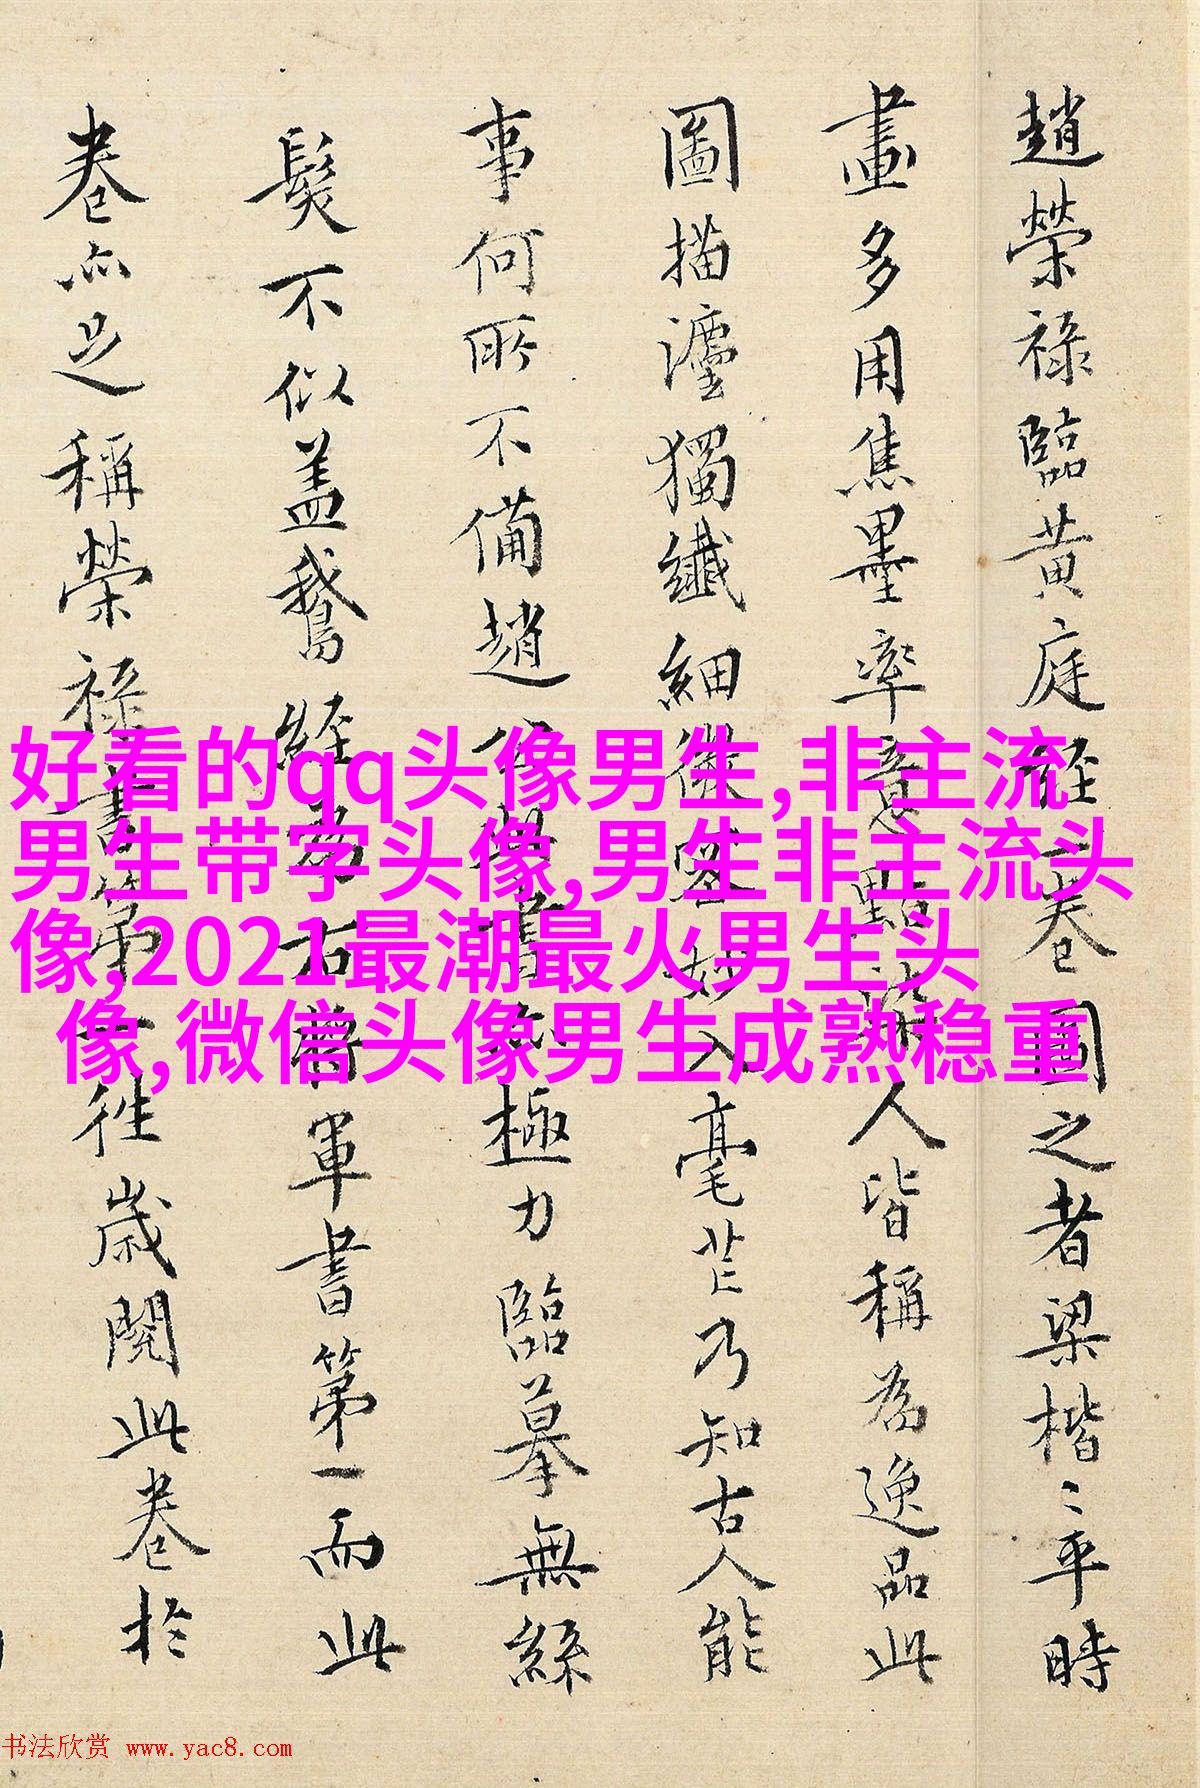 趙榮祿臨黃庭經一卷圖之者梁楷〻平時
畫多用焦墨率意點染人皆稱為逸品此
圖描灋獨纖細微密妙入毫芒乃知古人能
事何所不備趙公書極力臨摹無絲
髮不似盖鵞經為右將軍書第一而此
卷亦足稱榮祿書第一往歲閱此卷於
好看的qq头像男生,非主流
男生带字头像,男生非主流头
像,2021最潮最火男生头
像,微信头像男生成熟稳重
书法欣赏 www.yac8.com